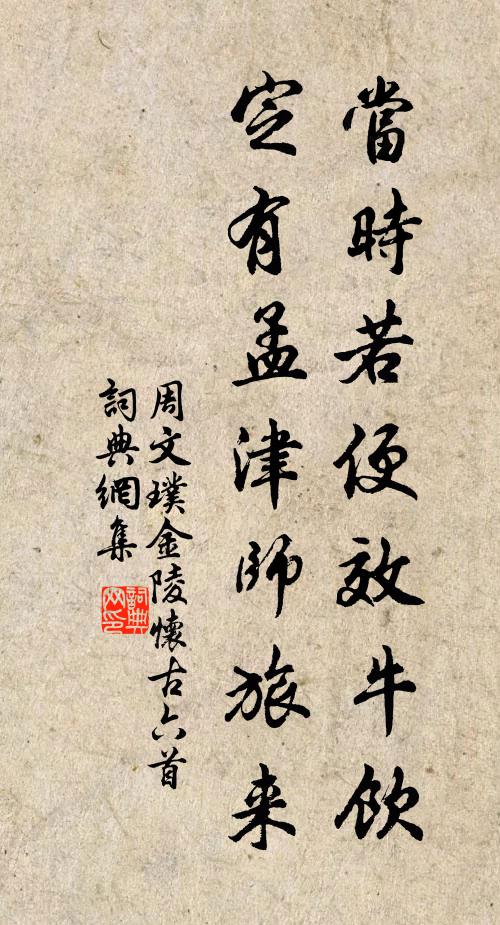 當時若便效牛飲
定有孟津師旅来
周文璞金陵懷古六首
詞典網集
詞典網印